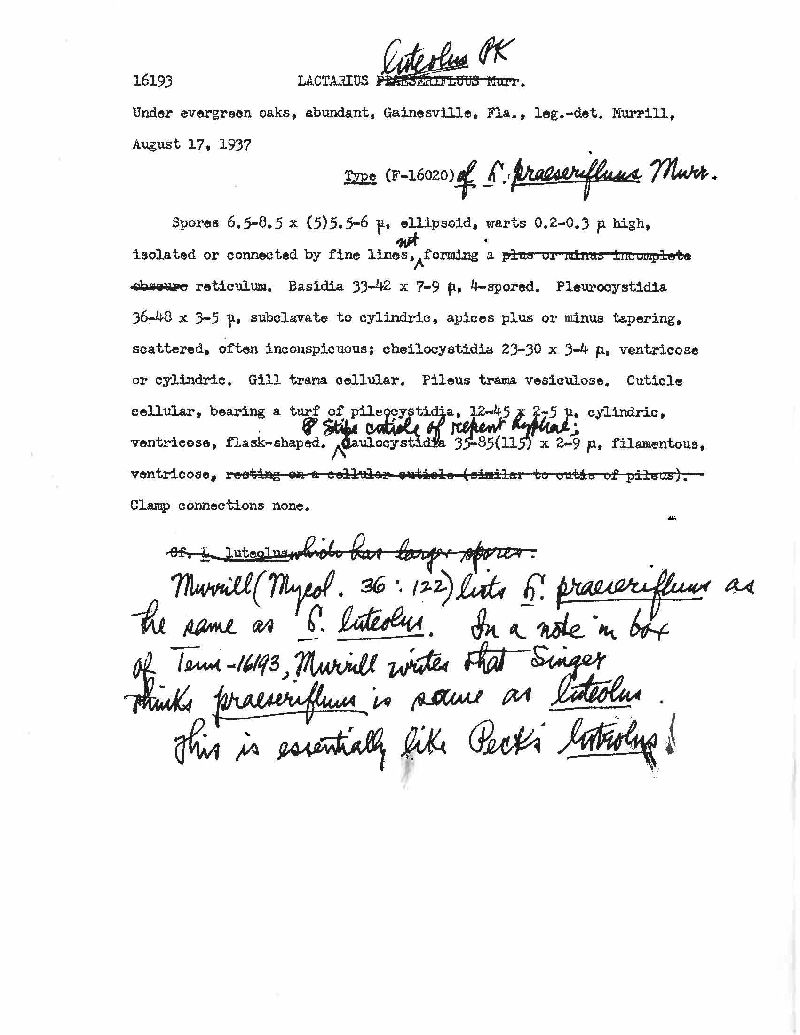 luteolus PK
16193 LACTARIUS PRAESERIFLUUS Murr.
Under evergreen oaks, abundant, Gainesville, Fla., leg.-det. Murrill,
August 17, 1937
Type (F-16020) of L. praeserifluus Murr.
Spores 6.5-8.5 x (5)5.5-6 µ, ellipsoid, warts 0.2-0.3 µ high,
not
isolated or connected by fine lines, forming a plus or minus incomplete
obscure reticulum. Basidia 33-42 x 7-9 µ, 4-spored. Pleurocystidia
36-48 x 3-5 µ, subclavate to cylindric, apices plus or minus tapering,
scattered, often inconspicuous; cheilocystidia 23-30 x 3-4 µ, ventricose
or cylindric. Gill trama cellular. Pileus trama vesiculose. Cuticle
cellular, bearing a turf of pileocystidia, 12-45 x 2-5 µ, cylindric,
Stipe cuticle of repent hyphae;
ventricose, flask-shaped. Caulocystidia 35-85(115) x 2-9 µ, filamentous,
ventricose, resting on a cellular cuticle (similar to cutis of pileus).
Clamp connections none.
Cf. L. luteolus which has larger spores.
Murrill (Mycol. 36: 122) lists L. praeserifluus as
the same as L. luteolus. In a note in box
of Tenn-16193, Murrill writes that Singer
thinks praeserifluus is same as luteolus.
This is essentially like Peck's luteolus!